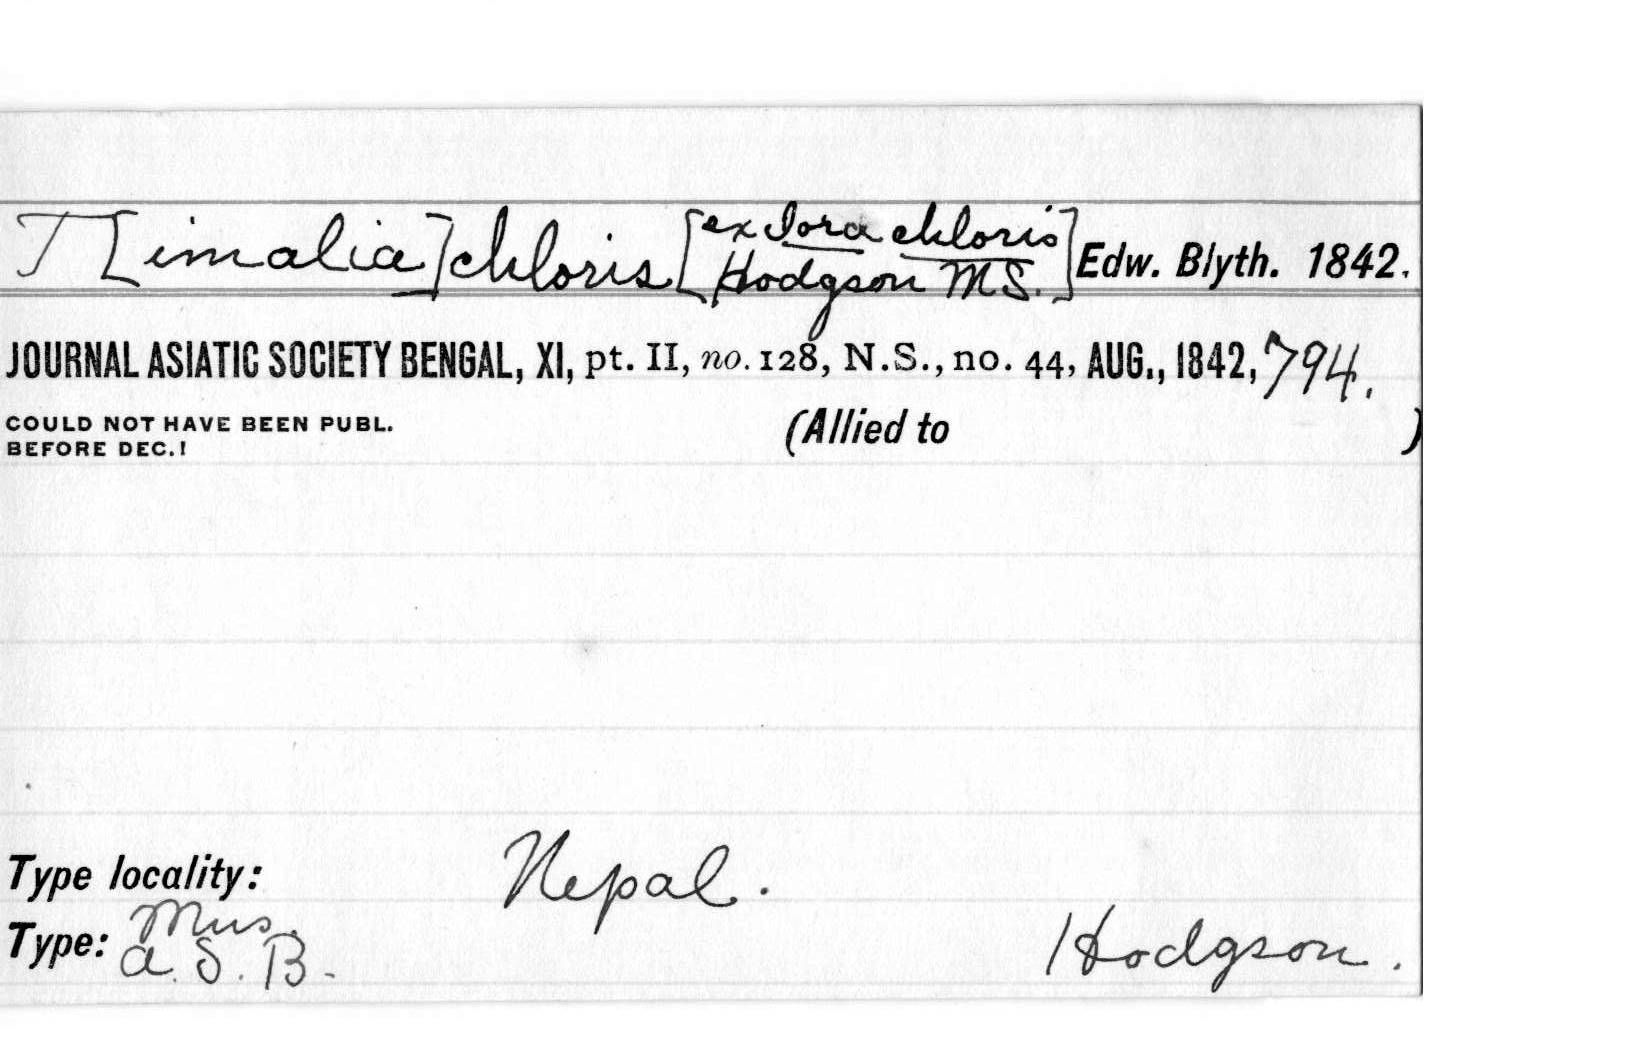 T[imalia] chloris [ex Iora chloris Hodgson MS.] Edw. Blyth. 1842.
JOURNAL ASIATIC SOCIETY BENGAL, XI, pt. II, no. 128, N.S., no. 44, AUG., 1842, 794.
COULD NOT HAVE BEEN PUBL.
BEFORE DEC.!
(Allied to )
Type locality: Nepal.
Type: Mus. A. S. B. Hodgson.